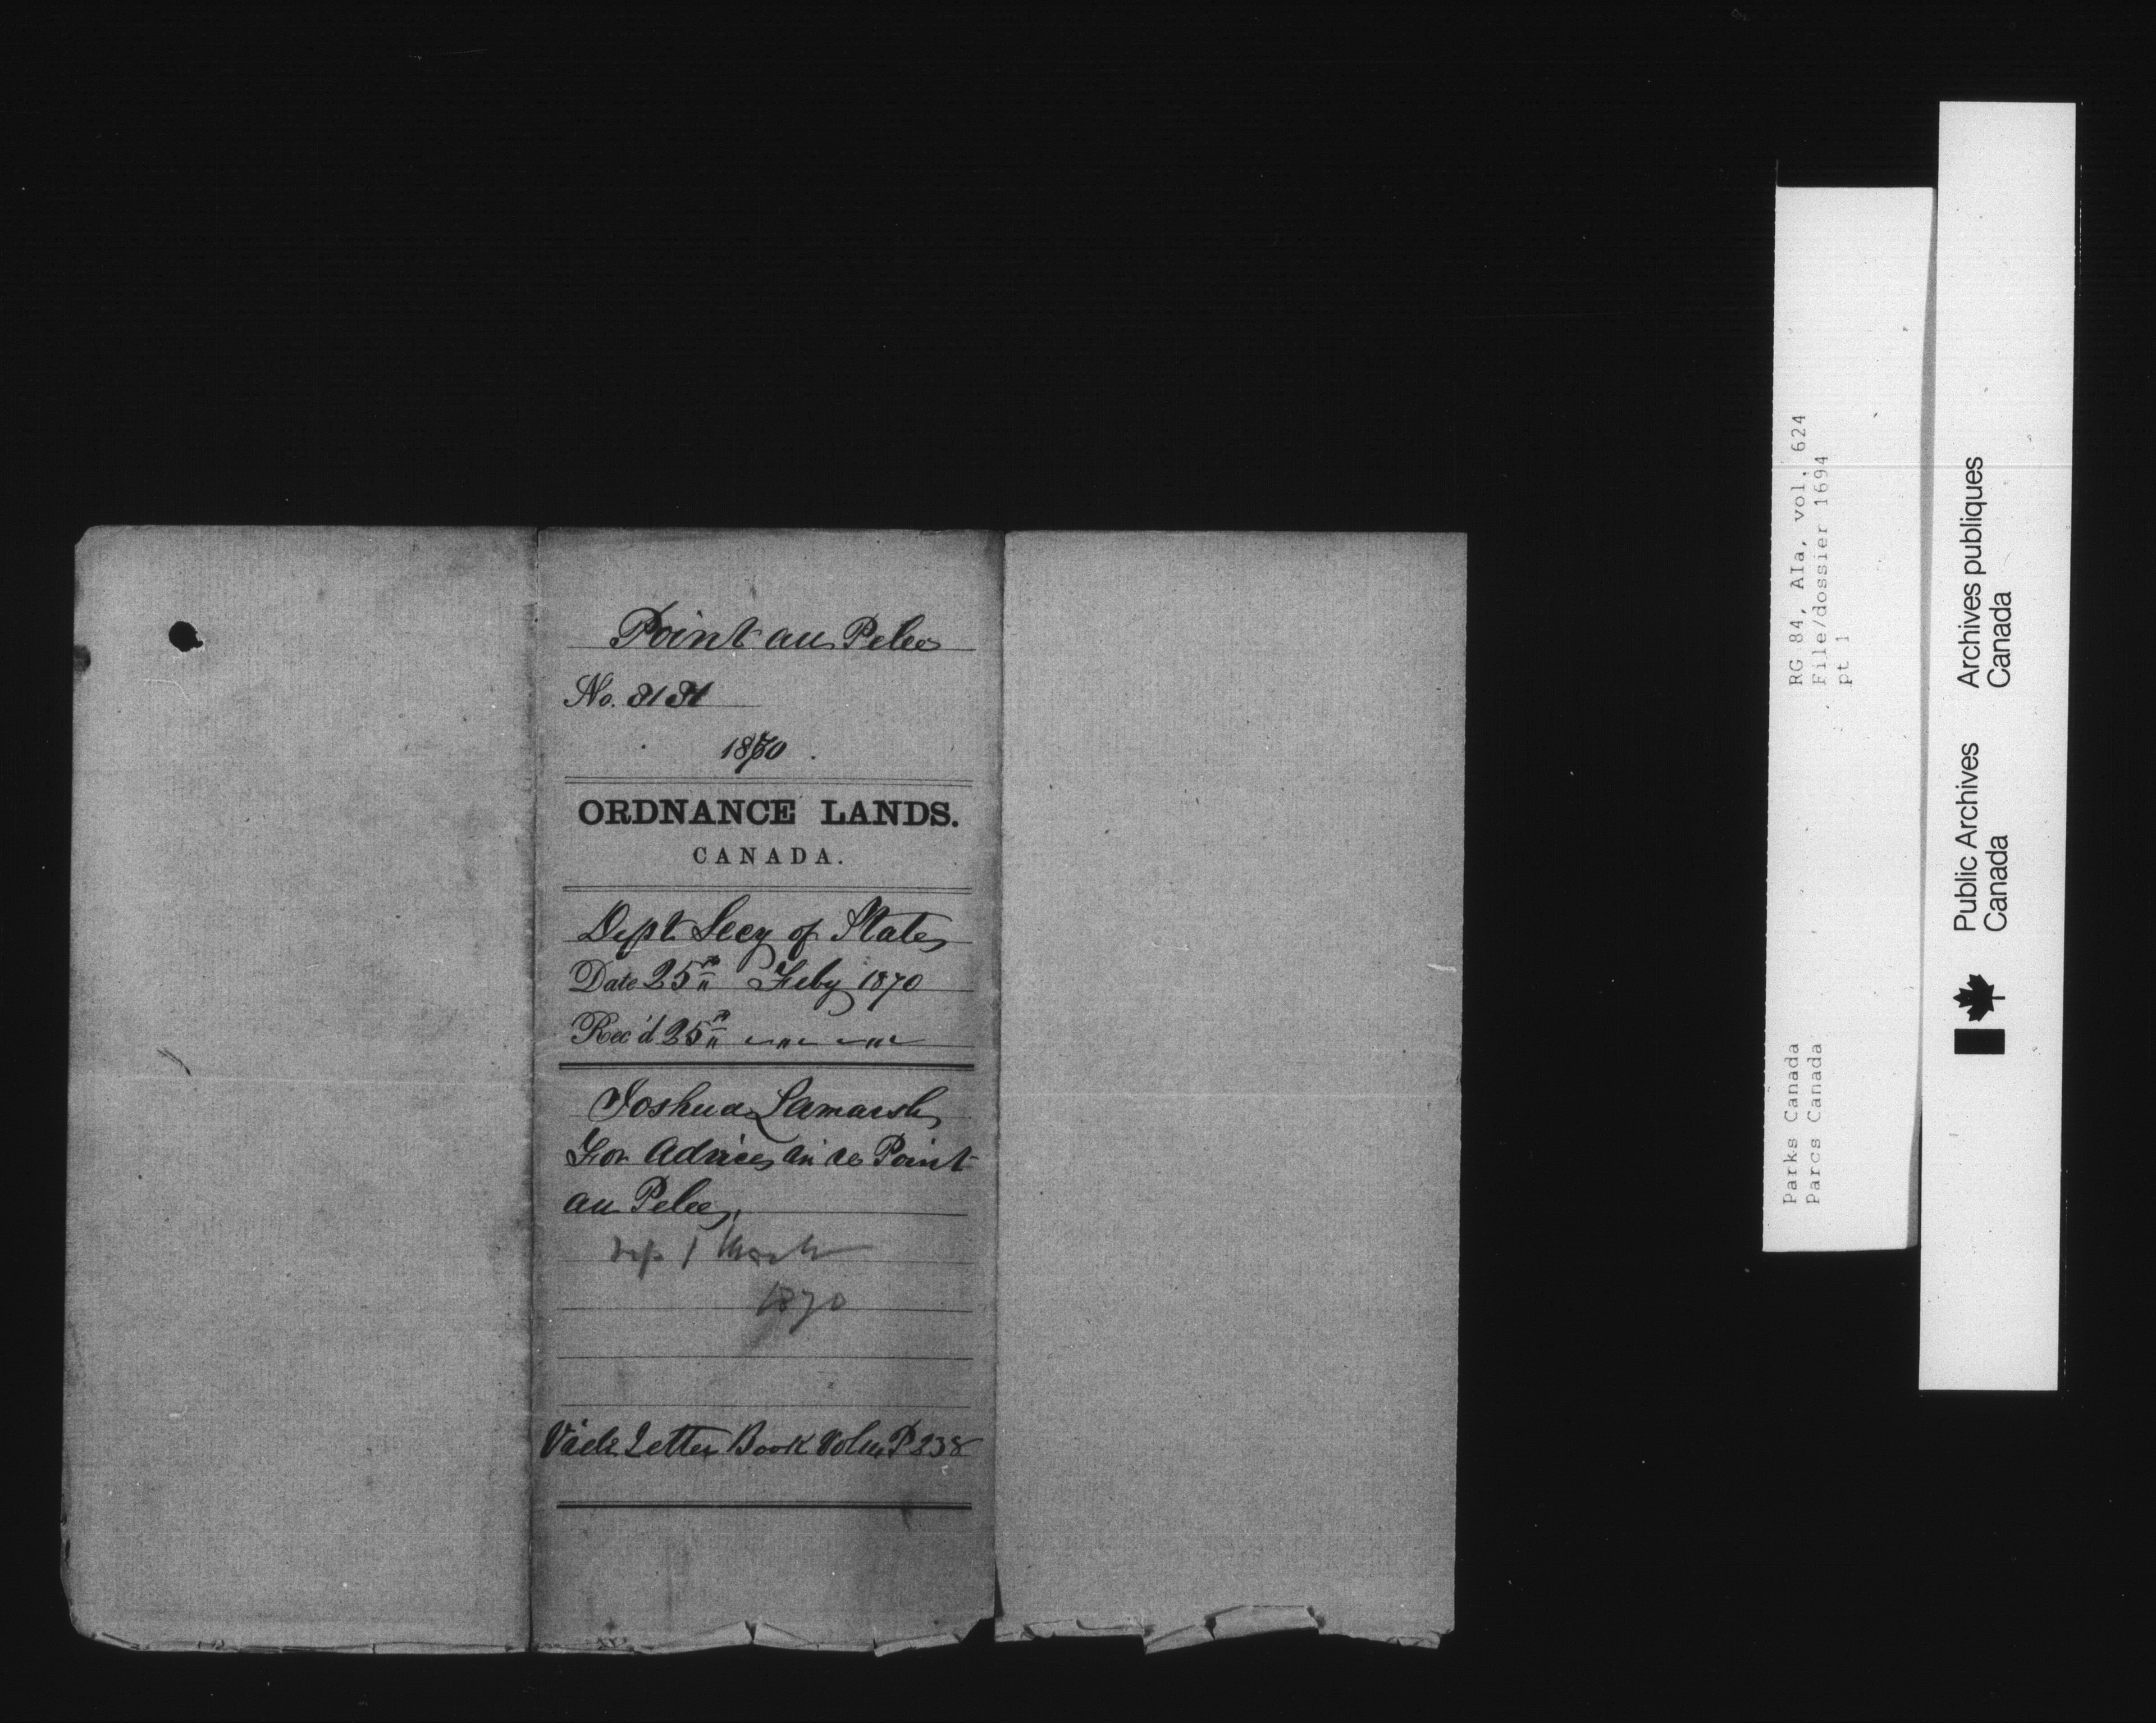 Point au Pelee
No. 3131
1870.
ORDNANCE LANDS.
CANADA.
Dept Secy of State
Date 25th Feby 1870
Rec'd 25th " "
Joshua Lamarsh
For advice in re Point
au Pelee,
1 March
1870
Vide Letter Book P 238
RG 84, AIa, vol. 624
File/dossier 1694
pt 1
Parks Canada
Parcs Canada
Public Archives
Canada
Archives publiques
Canada